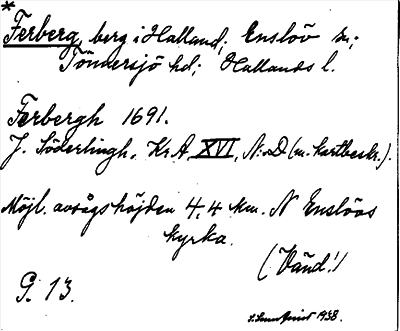 *
Ferberg, berg i Halland; Enslöv sn;
Tönnersjö hd; Hallands l.
Ferbergh 1691.
J. Söderlingh, Kr.A, XVI, N:o D (m. kartbeskr.).
Möjl. avsågs höjden 4,4 km. N Enslövs
kyrka.
(Vänd!)
G. 13.
1938.